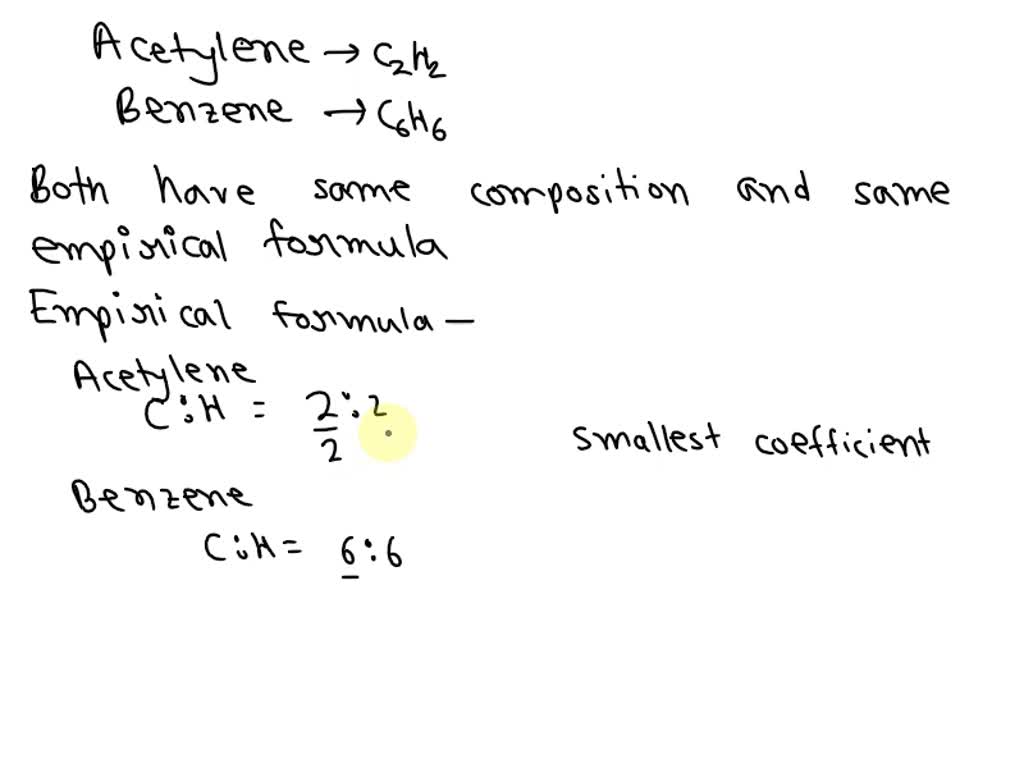 Acetylene → C2H2
Benzene → C6H6
Both have same composition and same
empirical formula
Empirical formula —
Acetylene
C:H = 2:2
2
smallest coefficient
Benzene
C:H = 6:6